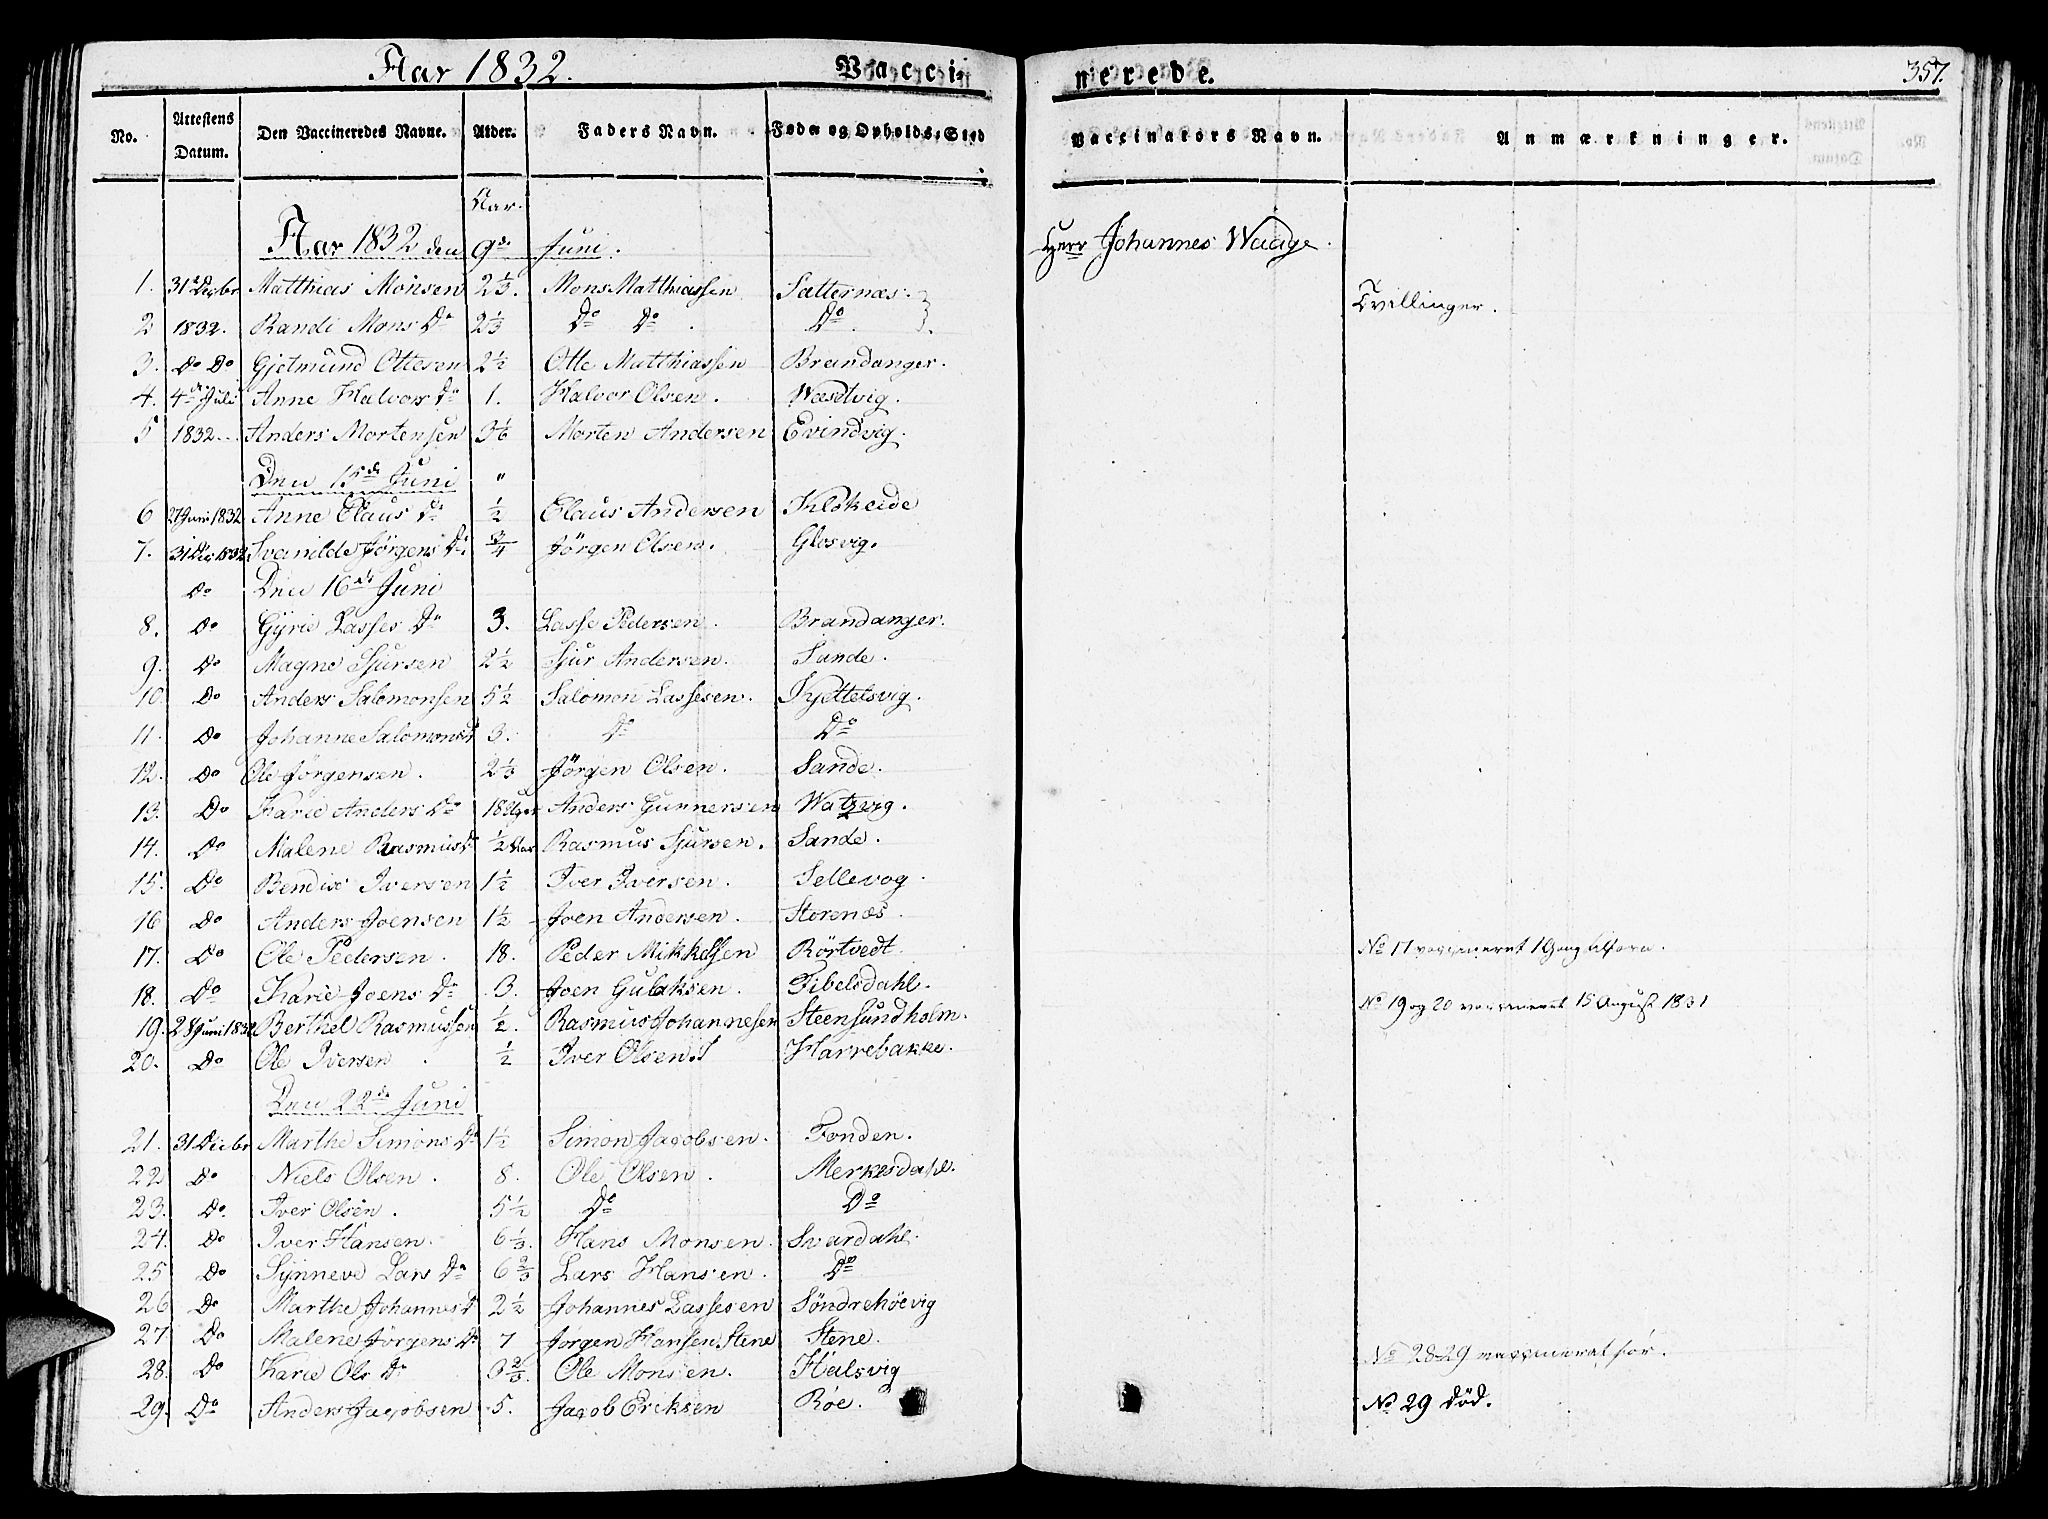 Aar 1832. Vaccinerede. 357.
No. Attestens Datum. Den Vaccineredes Navne. Alder. Faders Navn. Føde og Opholds-Sted Vaccinators Navn. Anmærkninger.
Aar.
Aar 1832 den 9de Juni. Herr Johannes Waage.
1. 31 Decbr Matthias Monsen 2 1/3. Mons Matthiassen Satternæs. Tvillinger.
2 1832. Randi Mons Dr 2 1/3 Do Do Do.
3. Do Do Gjetmund Ottesen 2 1/2 Otte Matthiassen Brandanger.
4. 4de Juli Anne Halvors Dr 1. Halvor Olsen. Wæstvig.
5 1832. Anders Mortensen 3 1/6 Morten Andersen Evindvig.
Den 15de Juni "
6 27 Juni 1832 Anne Claus Dr 1/2 Claus Andersen
7. 31 Dec 1832 Svanilde Jørgens Dr 3/4 Jørgen Olsen. Glosvig.
Do Den 16de Juni
8. Do Gÿrie Lasses Dr 3. Lasse Pedersen. Brandanger.
9. Do Magne Sjursen 2 1/2 Sjur Andersen. Sande.
10. Do Anders Salomonsen 5 1/2 Salomon Lassesen. Kjettelsvig.
11. Do Johanne Salomons Dr 3. Do Do
12. Do Ole Jørgensen. 2 1/3 Jørgen Olsen. Sande.
13. Do Karie Anders Dr 18 Uger Anders Gunnersen Watzvig.
14. Do Malene Rasmus Dr 1/2 Aar Rasmus Sjursen. Sande.
15. Do Bendix Iversen 1 1/2 Iver Iversen. Sellevog.
16 Do Anders Joensen 1 1/2 Joen Andersen. Storenæs.
17. Do Ole Pedersen. 18. Peder Mikkelsen Rörtvedt. No 17 vaccineret 1 Gang tilforn.
18. Do Karie Joens Dr 3. Joen Gulaksen. Tibelsdahl.
19. 28 Juni 1832 Berthel Rasmussen 1/2. Rasmus Johannesen Steensundholm. No 19 og 20 vaccineret 15 August 1831
20. Do Ole Iversen. 1/2 Iver Olsen. Harrebakke.
Den 22de Juni
21. 31 Decbr Marthe Simons Dr 1 1/2 Simon Jacobsen. Fonden.
22 Do Niels Olsen. 8. Ole Olsen. Merkesdahl.
23. Do Iver Olsen. 5 1/2 Do Do
24. Do Iver Hansen. 6 1/3. Hans Monsen. Svardahl.
25 Do Sÿnneve Lars Dr 6 2/3 Lars Hansen. Do
26 Do Marthe Johannes Dr 2 1/2 Johannes Lassesen Söndrehöevig
27. Do Malene Jørgens Dr 7 Jørgen Hansen Stene Stene.
28. Do Karie Ols Dr 3 2/3. Ole Monsen. Halsvig No 28-29 vaccineret før.
29. Do Anders Jacobsen 5. Jacob Eriksen Røe. No 29 død.